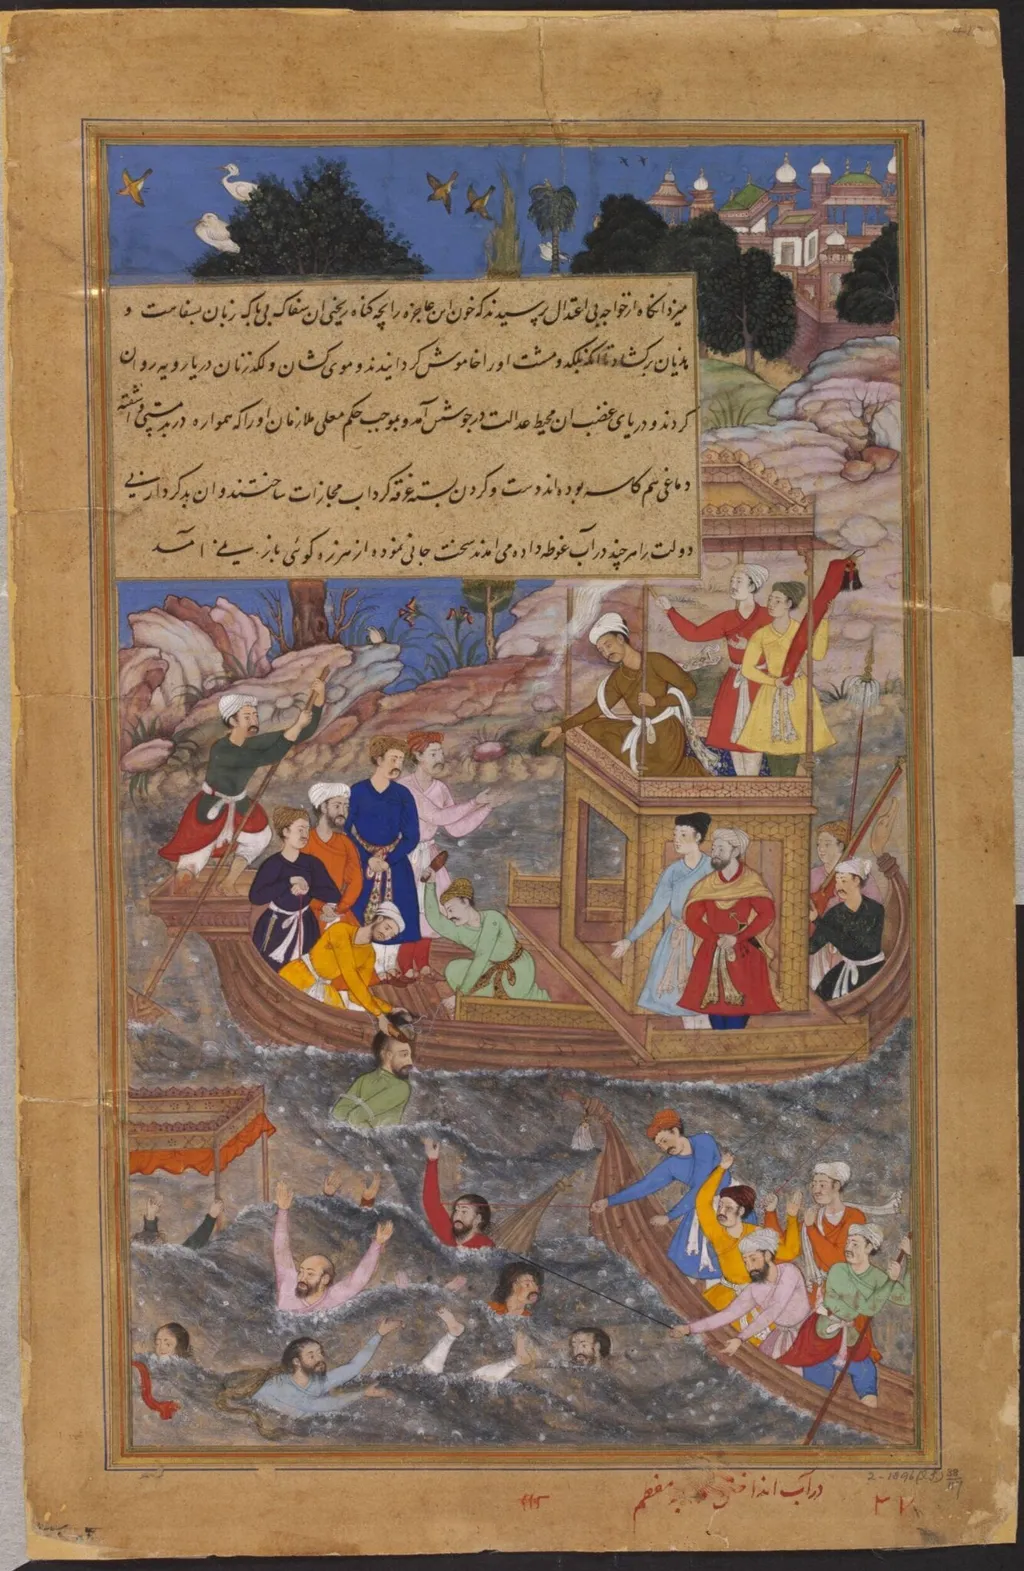 میزد آنگاه از خواجه بی اعتدال پرسیدند که خون این عاجزه را بچه گناه ریختی ان سفاک بی باک زبان بسفاهت و
هذیان برکشاد تا انکه بلکد و مشت او را خاموش کردانیدند و موی کشان و لکدزنان دریا رویه روان
کردند و دریای غضب ان محیط عدالت در جوشش آمد و بموجب حکم معلی ملازمان او را که همواره در بدمستی و اشفته
دماغی هم کاسه بوده اند دست و کردن بسته غرقه کرداب مجازات ساختند و ان بدکردار بی
دولت را هر چند در آب غوطه داده می امدند سخت جانی نموده از هرزه کوئی باز نمی آمد
در آب انداختن معظم
۲۷
2-1896 (I.S.) 28/117